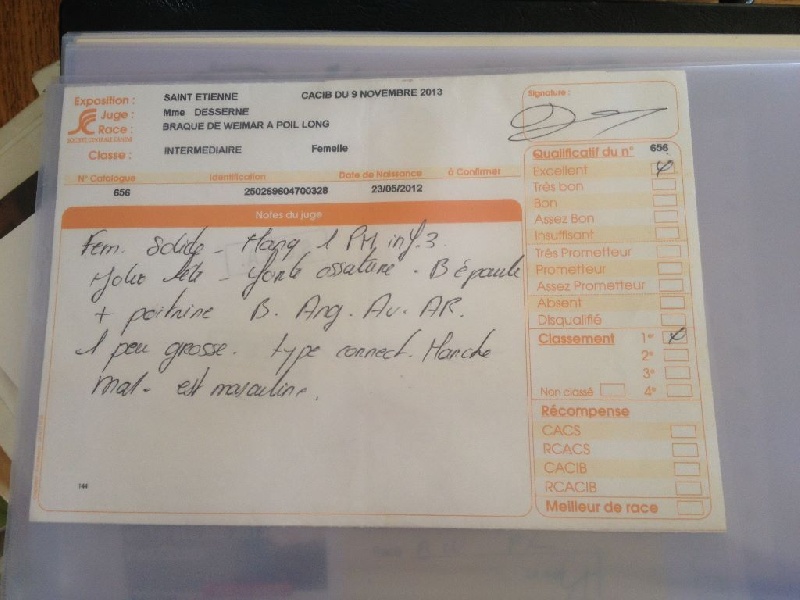 Exposition : SAINT ETIENNE CACIB DU 9 NOVEMBRE 2013
Juge : Mme DESSERNE
Race : BRAQUE DE WEIMAR A POIL LONG
Classe : INTERMEDIAIRE Femelle
N° Catalogue Identification Date de Naissance à Confirmer
656 250269604700328 23/05/2012
Notes du juge
Fem. Solide - Manq 1 PM inf. 3.
Jolie tête - forte ossature. B épaule
+ poitrine B. Ang. Av. AR.
1 peu grosse. type correct. Marche
mal - est masculine.
166
Signature :
Qualificatif du n° 656
Excellent
Très bon
Bon
Assez Bon
Insuffisant
Très Prometteur
Prometteur
Assez Prometteur
Absent
Disqualifié
Classement 1°
2°
3°
Non classé 4°
Récompense
CACS
RCACS
CACIB
RCACIB
Meilleur de race